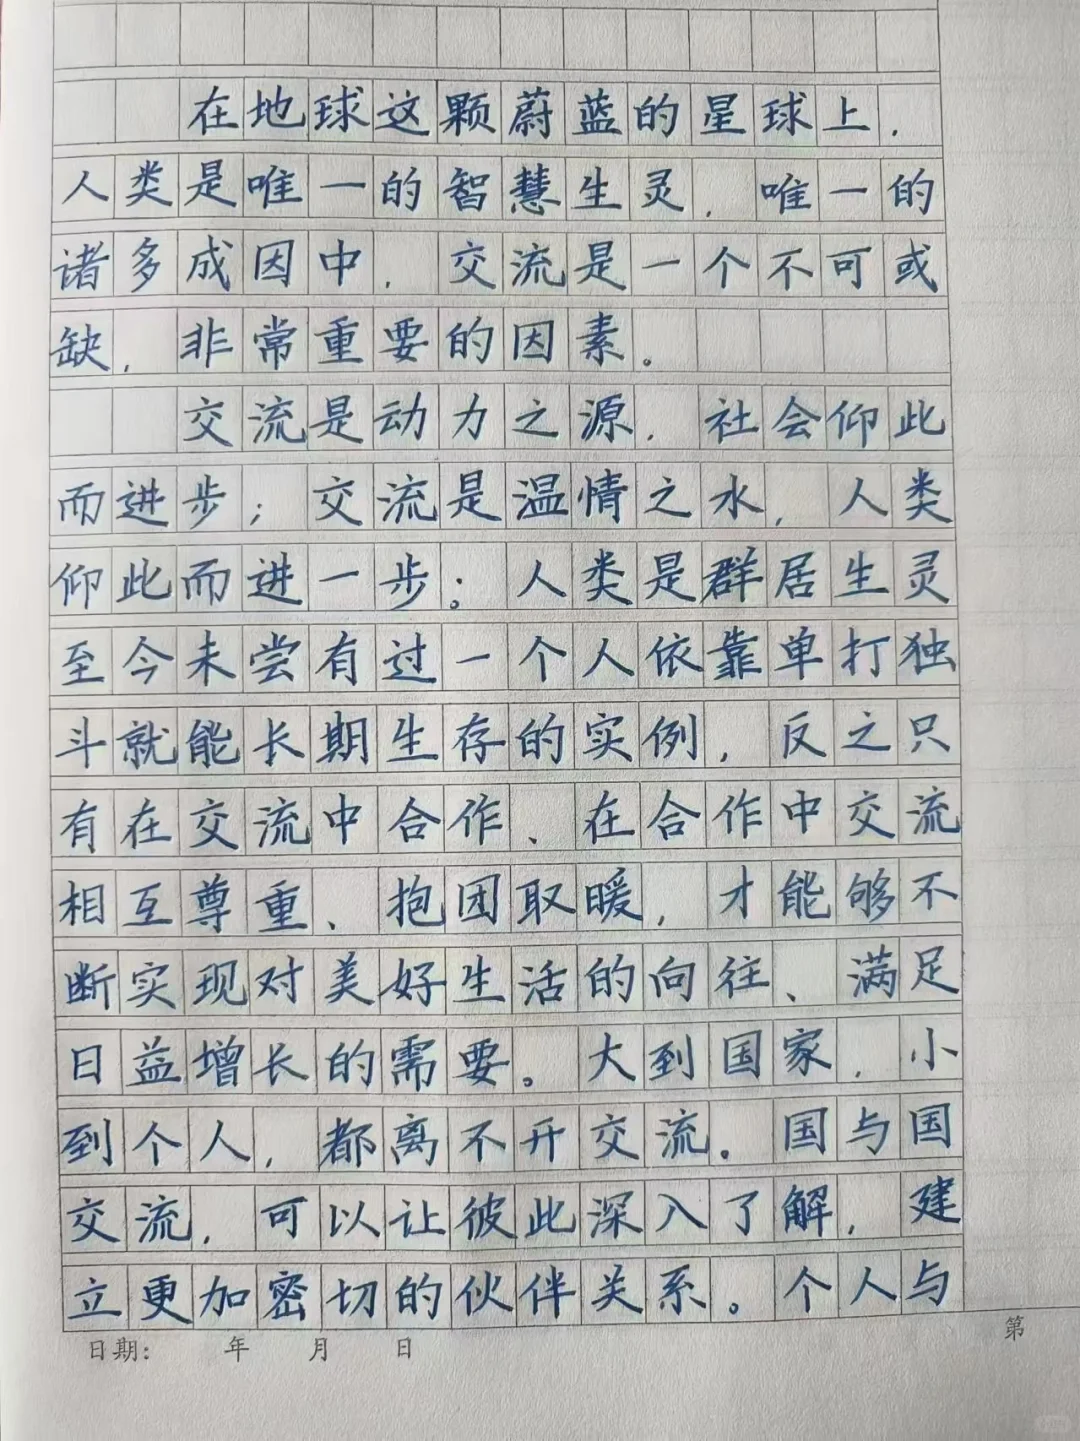 在地球这颗蔚蓝的星球上，
人类是唯一的智慧生灵，唯一的
诸多成因中，交流是一个不可或
缺，非常重要的因素。
交流是动力之源，社会仰此
而进步；交流是温情之水，人类
仰此而进一步。人类是群居生灵
至今未尝有过一个人依靠单打独
斗就能长期生存的实例，反之只
有在交流中合作、在合作中交流
相互尊重、抱团取暖，才能够不
断实现对美好生活的向往、满足
日益增长的需要。大到国家，小
到个人，都离不开交流。国与国
交流，可以让彼此深入了解，建
立更加密切的伙伴关系。个人与
日期： 年 月 日
第